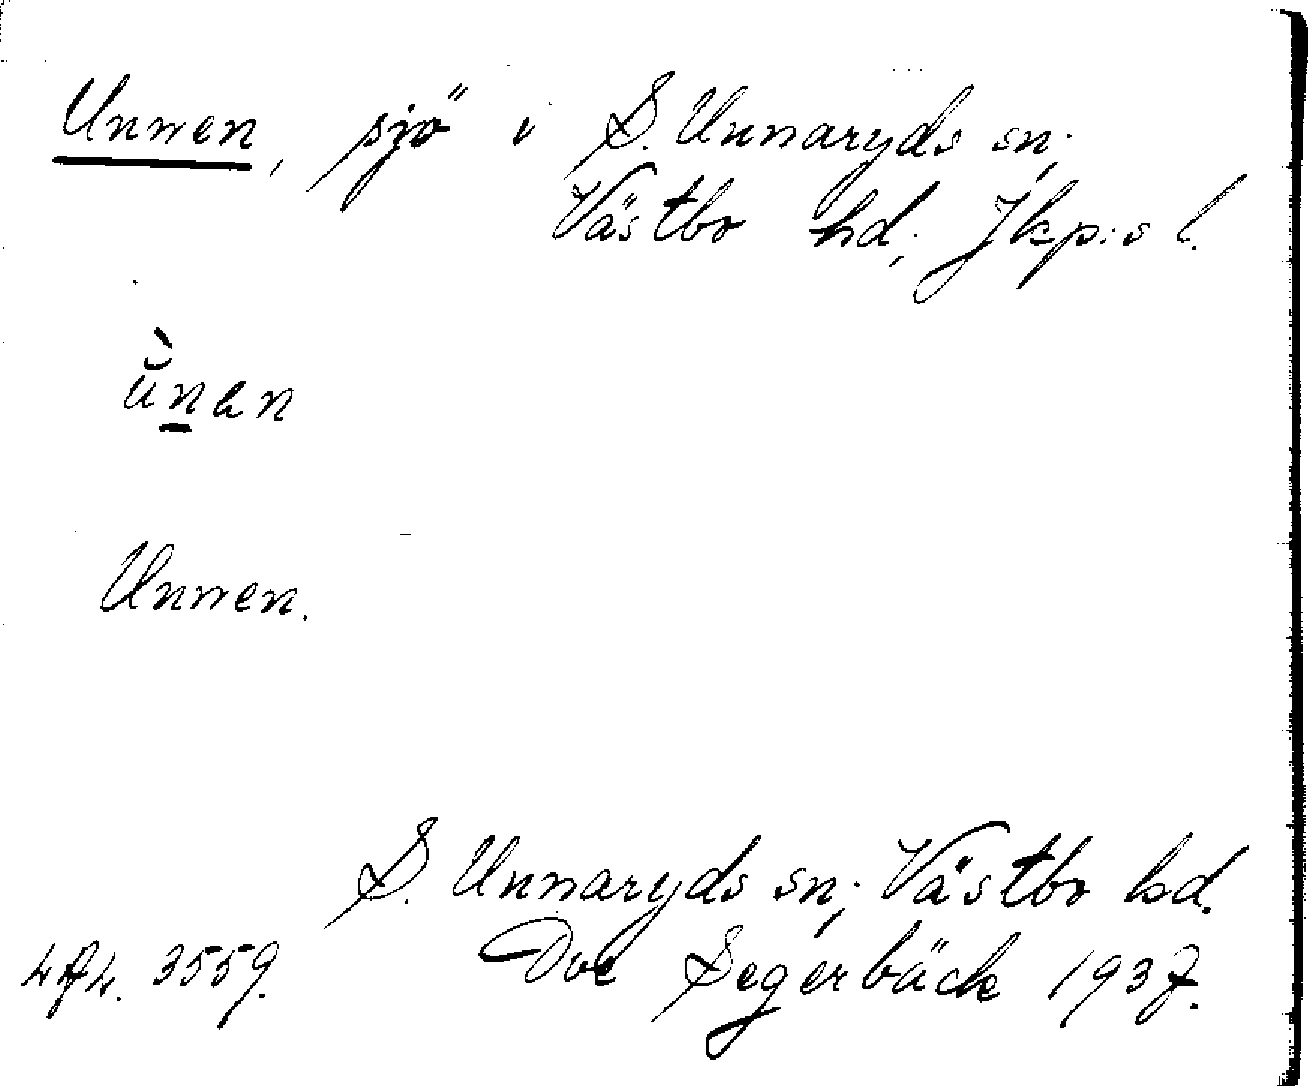 Unnen, sjö i S. Unnaryds sn;
Västbo hd; Jkp:s l.
Unnen.
S. Unnaryds sn; Västbo hd.
3559. Segerbäck 1937.